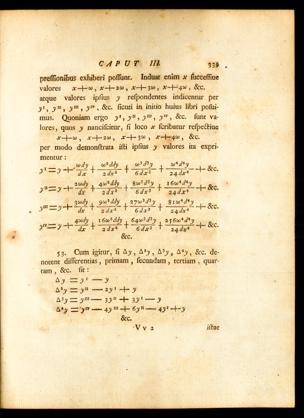 CAPUT III. 339
pressionibus exhiberi possunt. Induat enim x successiue
valores x+ω, x+2ω, x+3ω, x+4ω, &c.
atque valores ipsius y respondentes indicentur per
yᴵ, yᴵᴵ, yᴵᴵᴵ, yᴵⱽ, &c. sicuti in initio huius libri posui-
mus. Quoniam ergo yᴵ, yᴵᴵ, yᴵᴵᴵ, yᴵⱽ, &c. sunt va-
lores, quos y nanciscitur, si loco x scribatur respectiue
x+ω, x+2ω, x+3ω, x+4ω, &c.
per modo demonstrata isti ipsius y valores ita expri-
mentur:
yᴵ = y + ωdy/dx + ω²ddy/2dx² + ω³d³y/6dx³ + ω⁴d⁴y/24dx⁴ + &c.
yᴵᴵ = y + 2ωdy/dx + 4ω²ddy/2dx² + 8ω³d³y/6dx³ + 16ω⁴d⁴y/24dx⁴ + &c.
yᴵᴵᴵ = y + 3ωdy/dx + 9ω²ddy/2dx² + 27ω³d³y/6dx³ + 81ω⁴d⁴y/24dx⁴ + &c.
yᴵⱽ = y + 4ωdy/dx + 16ω²ddy/2dx² + 64ω³d³y/6dx³ + 256ω⁴d⁴y/24dx⁴ + &c.
&c.
53. Cum igitur, si Δy, Δ²y, Δ³y, Δ⁴y, &c. de-
notent differentias, primam, secundam, tertiam, quar-
tam, &c. sit:
Δy = yᴵ − y
Δ²y = yᴵᴵ − 2yᴵ + y
Δ³y = yᴵᴵᴵ − 3yᴵᴵ + 3yᴵ − y
Δ⁴y = yᴵⱽ − 4yᴵᴵᴵ + 6yᴵᴵ − 4yᴵ + y
&c.
Vv 2 istae